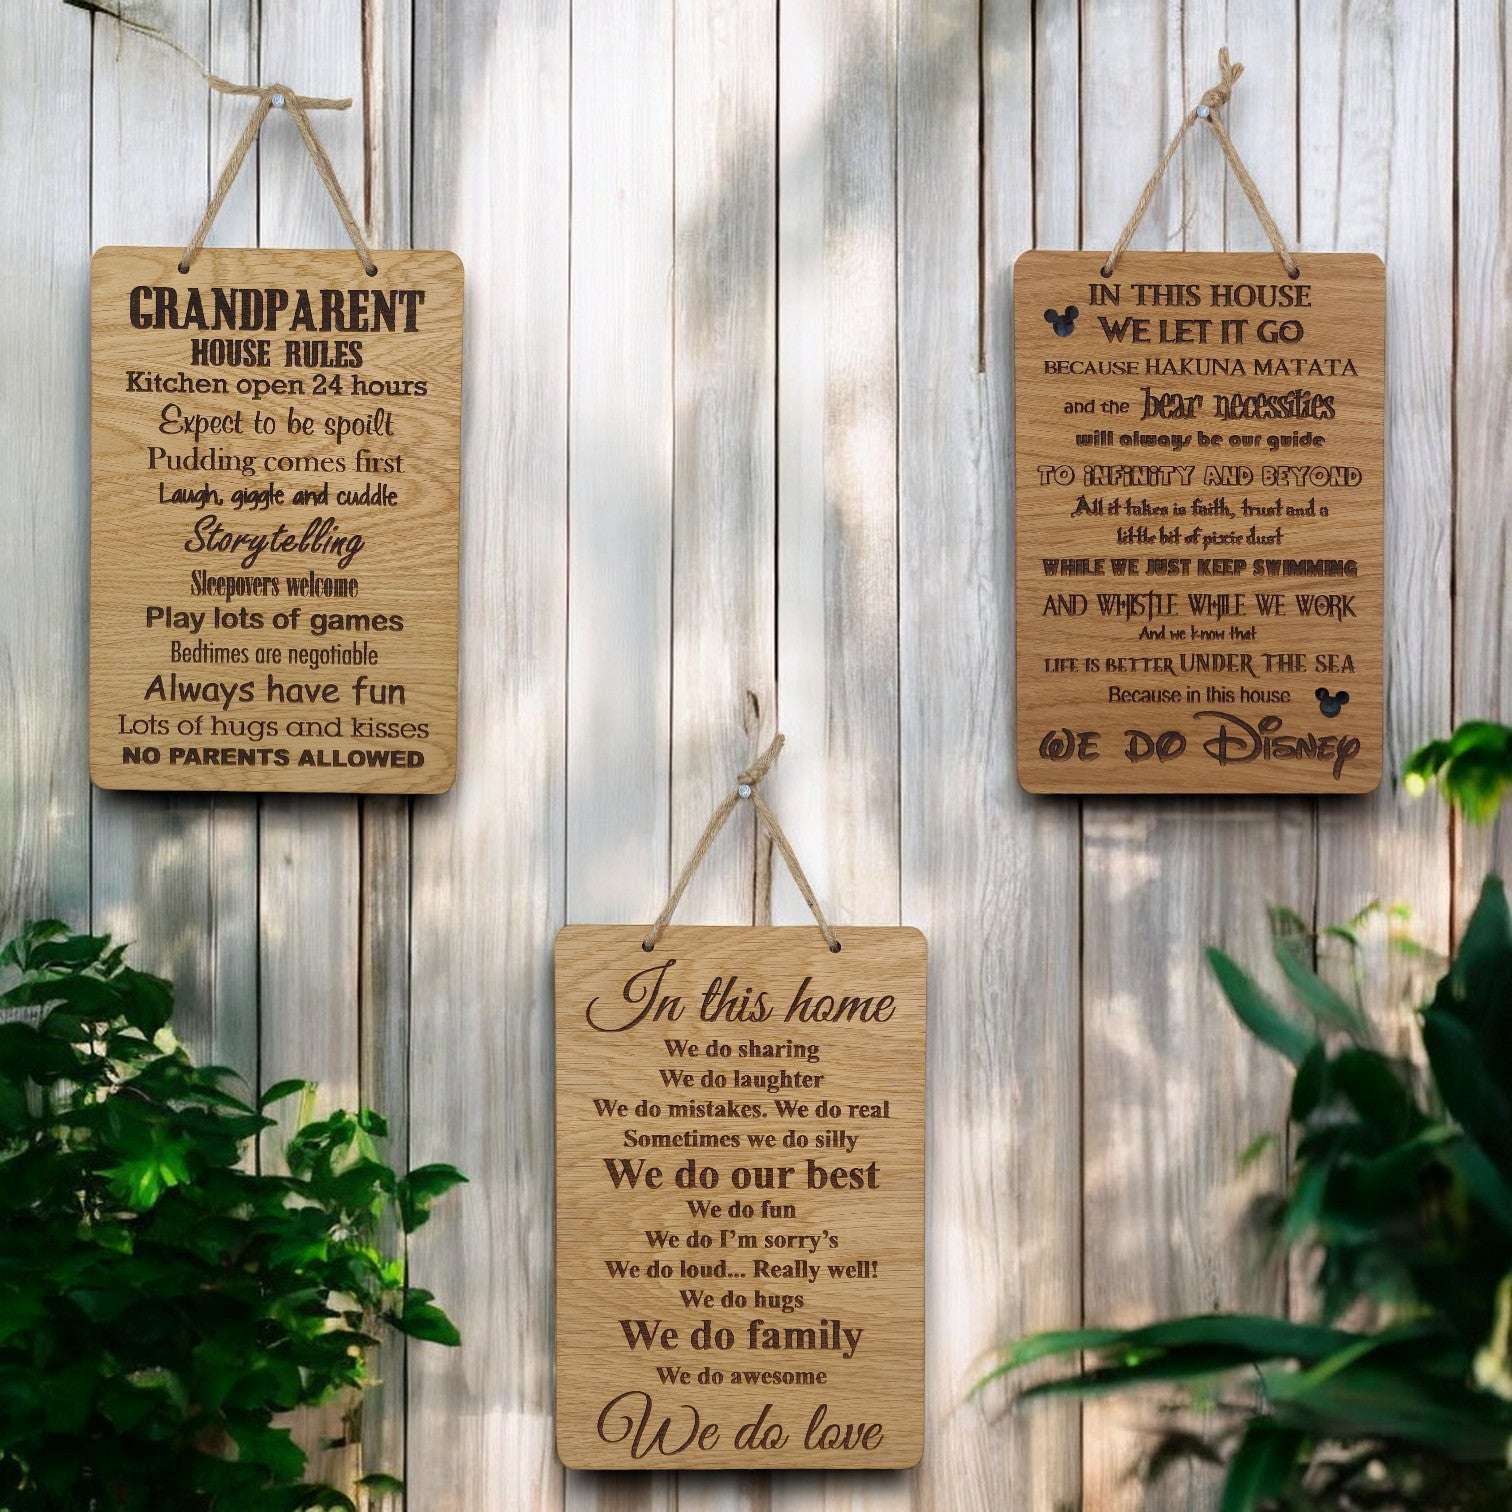 GRANDPARENT
HOUSE RULES
Kitchen open 24 hours
Expect to be spoilt
Pudding comes first
Laugh, giggle and cuddle
Storytelling
Sleepovers welcome
Play lots of games
Bedtimes are negotiable
Always have fun
Lots of hugs and kisses
NO PARENTS ALLOWED
IN THIS HOUSE
WE LET IT GO
BECAUSE HAKUNA MATATA
and the bear necessities
will always be our guide
TO INFINITY AND BEYOND
All it takes is faith, trust and a
little bit of pixie dust
WHILE WE JUST KEEP SWIMMING
AND WHISTLE WHILE WE WORK
And we know that
LIFE IS BETTER UNDER THE SEA
Because in this house
WE DO DISNEY
In this home
We do sharing
We do laughter
We do mistakes. We do real
Sometimes we do silly
We do our best
We do fun
We do I'm sorry's
We do loud... Really well!
We do hugs
We do family
We do awesome
We do love